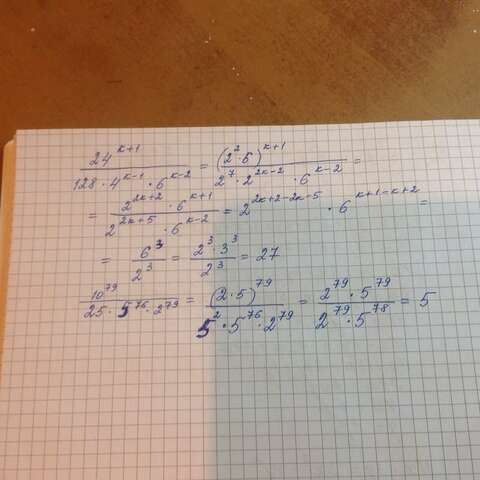 24^{k+1} / (128 · 4^{k-1} · 6^{k-2}) = (2^2 · 6)^{k+1} / (2^7 · 2^{2k-2} · 6^{k-2}) =
= 2^{2k+2} · 6^{k+1} / (2^{2k+5} · 6^{k-2}) = 2^{2k+2-2k-5} · 6^{k+1-k+2} =
= 6^3 / 2^3 = 2^3 · 3^3 / 2^3 = 27
10^{79} / (25 · 5^{76} · 2^{79}) = (2 · 5)^{79} / (5^2 · 5^{76} · 2^{79}) = 2^{79} · 5^{79} / (2^{79} · 5^{78}) = 5